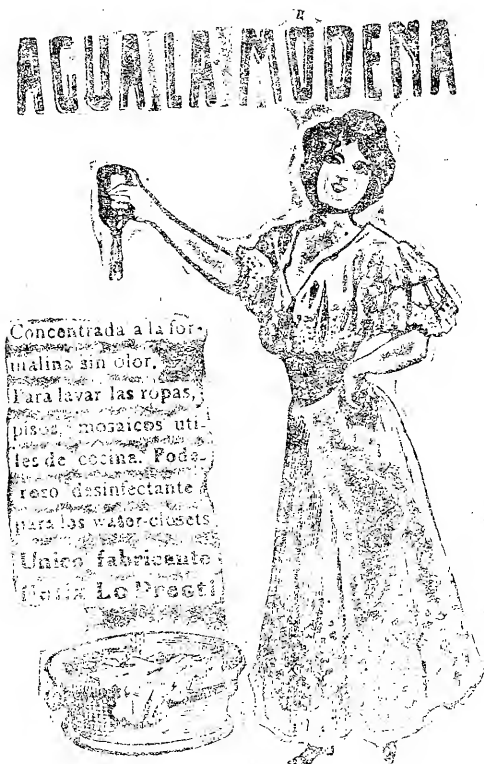 AGUA LA MODENA
Concentrada a la for-
malina sin olor.
Para lavar las ropas,
pisos, mosaicos uti-
les de cocina. Pode-
roso desinfectante
para los water-closets
Unico fabricante
Lo Presti